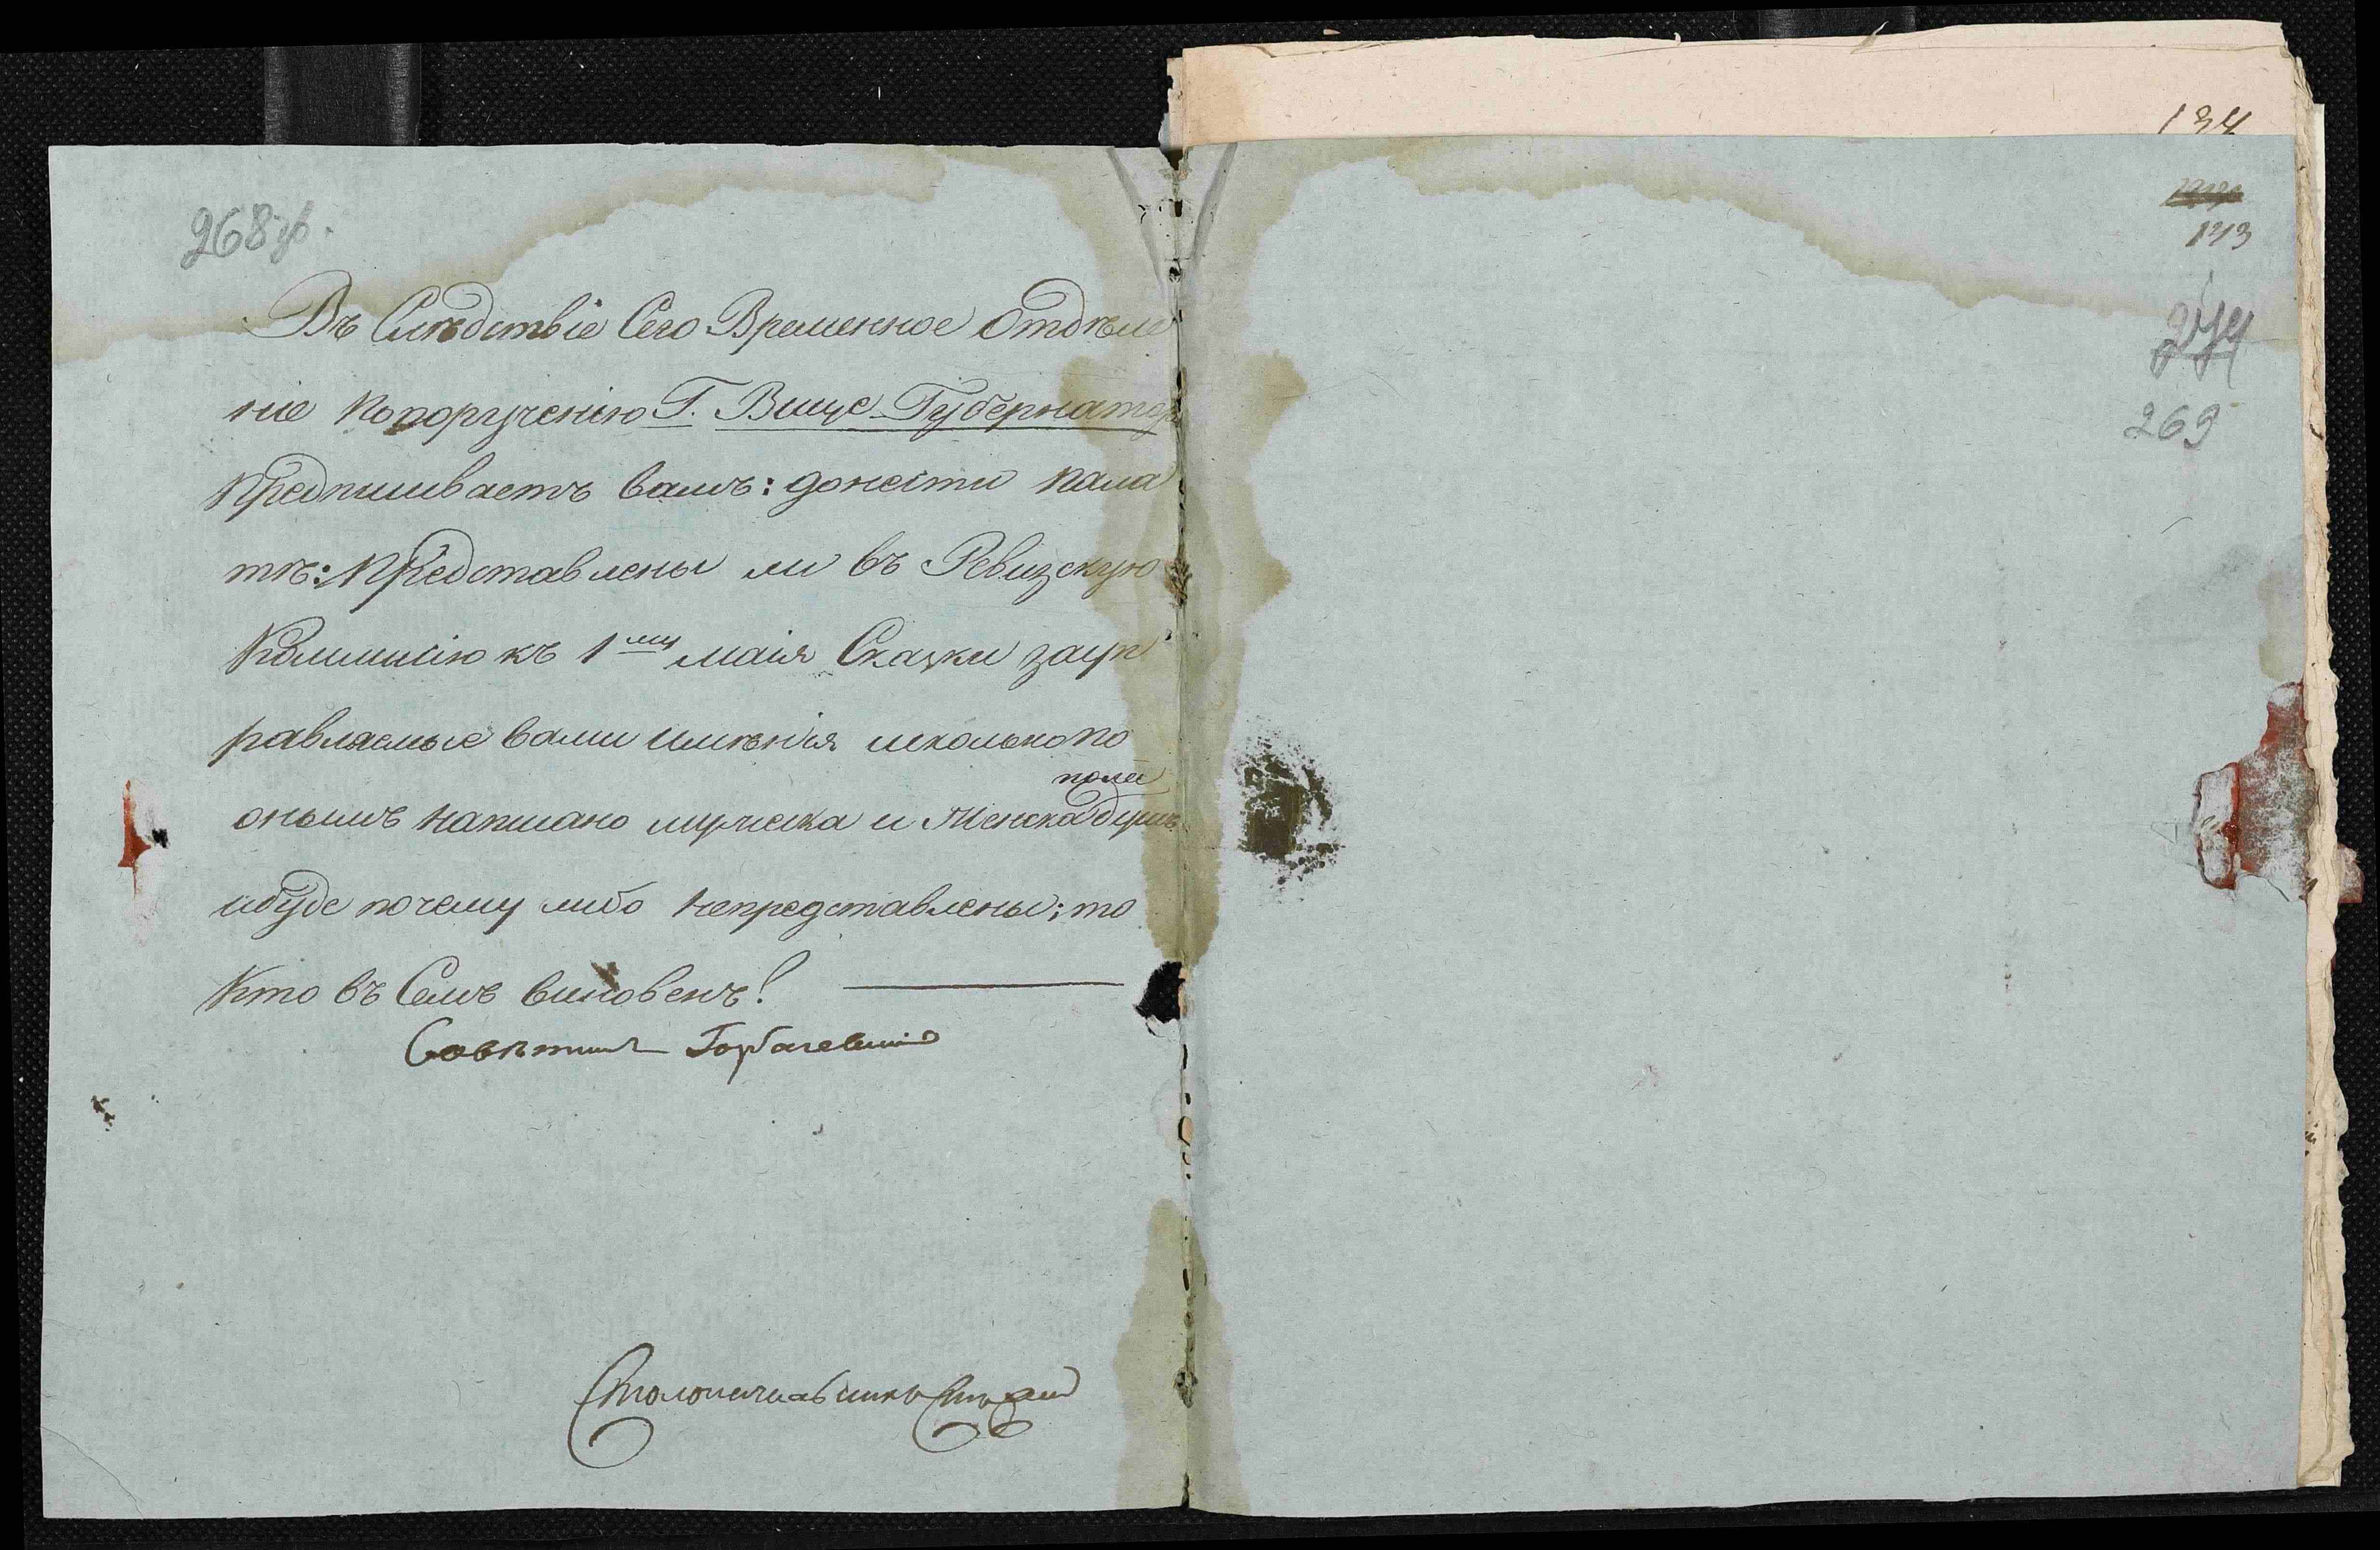 268 об.
Въ Слѣдствіе Сего Временное Отдѣле
ніе по порученію Г. Вице Губернатора
предписываетъ вамъ: донести пала
тѣ: представлены ли въ Ревизскую
Коммисію къ 1му маія Сказки за уп
равляемые вами имѣнія исколько по
полу
онымъ написано мужеска и женска душъ
ибуде почему либо непредставлены; то
Кто въ Семъ виновенъ!
Совѣтникъ Горбачевскій
Столоначальникъ
134
143
274
269